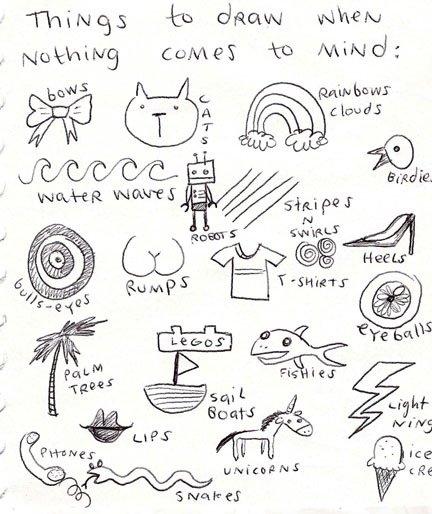 Things to draw when
nothing comes to mind:
bows
CATS
Rainbows
Clouds
Birdie
water waves
ROBOTS
STRIPES
N
SWIRLS
HEELS
Bulls-eyes
RUMPS
T-SHIRTS
eyeballs
PALM
TREES
LEGOS
FISHIES
SAIL
BOATS
Light
NING
LIPS
UNICORNS
PHONES
SNAKES
ice
CRE